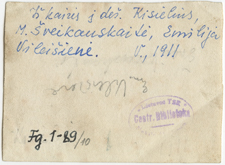 Iš kairės į deš. Kisielius,
M. Šreikauskaitė, Emilija
Vileišienė. V., 1911
Centr. Biblioteka
Fg. 1-89/10